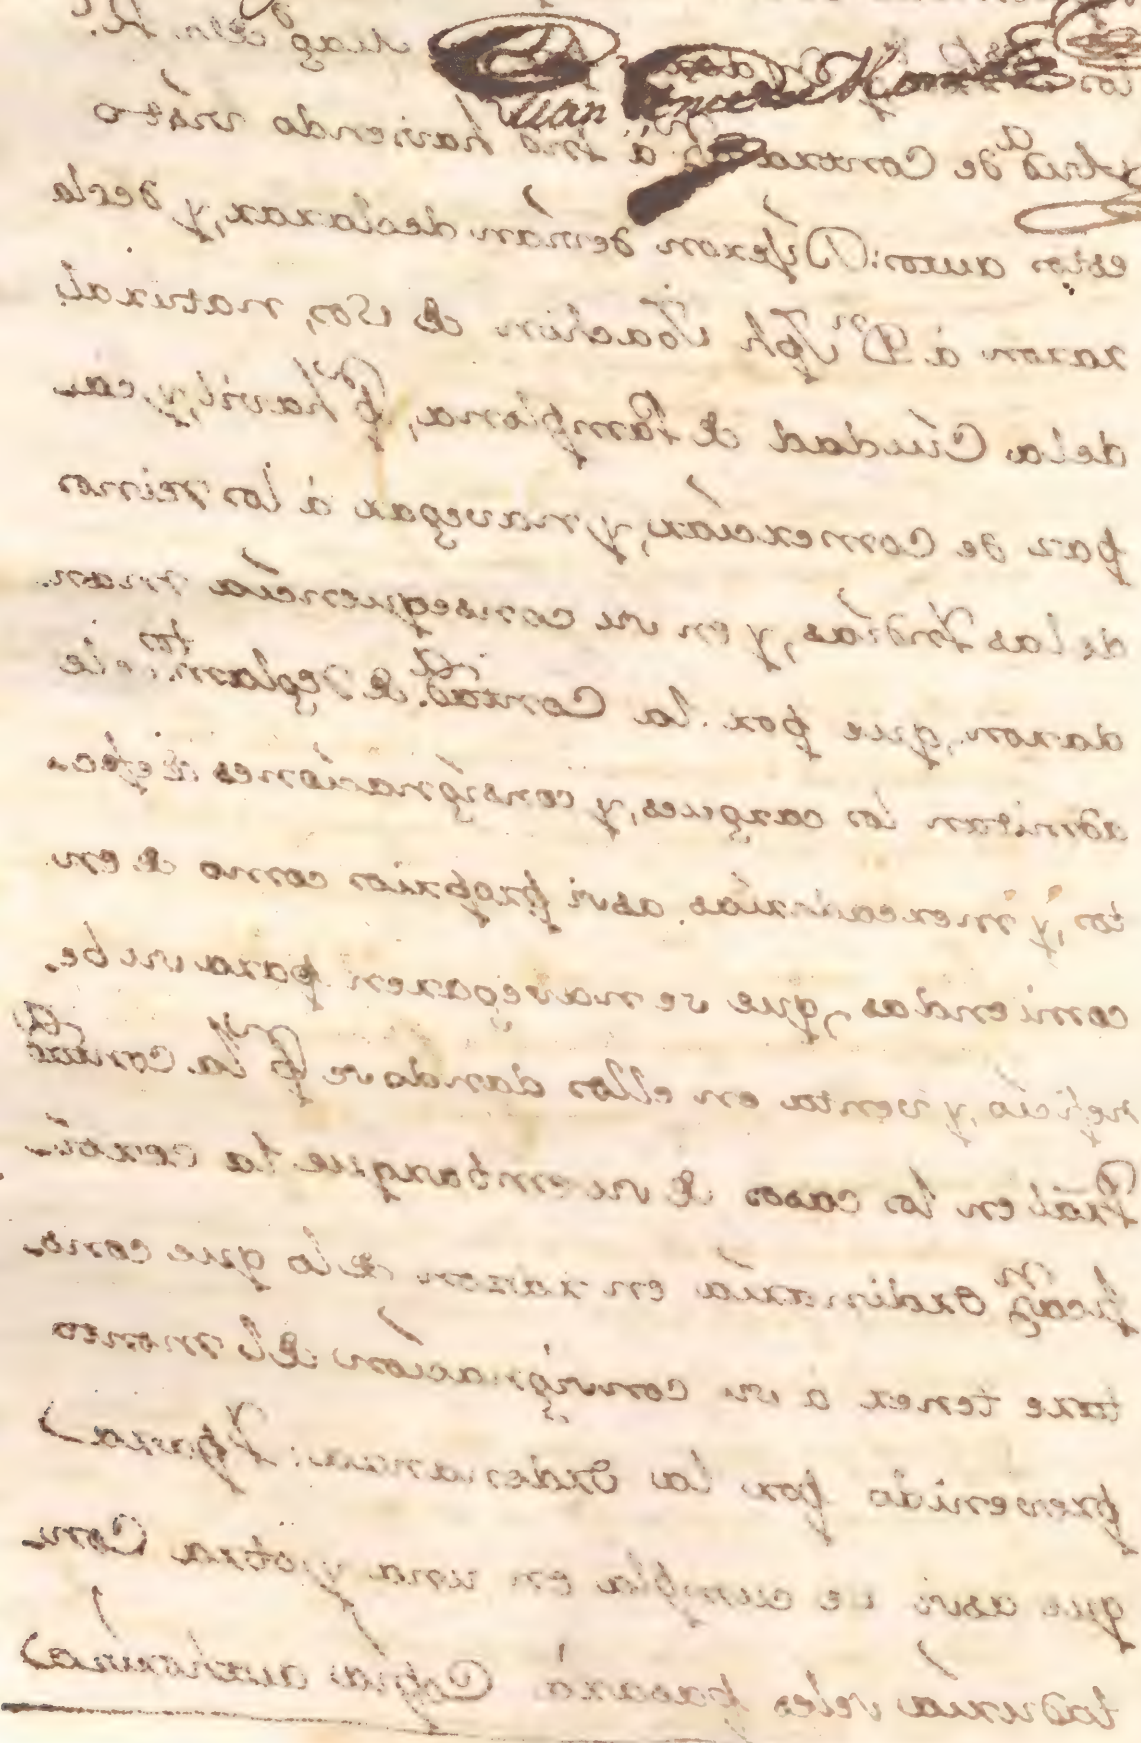 Juan
Aud.a de Contratac.on á Ind haviendo visto
estos autos: Dijeron devian declarar, y decla
raron á D.n Jph Joachin de Vor, natural
de la Ciudad de Pamplona, p.r havil, y ca
paz de Comerciar, y navegar á los reinos
de las Indias, y en su consequencia man
daron, que por la Contad.a de reglam.tos se le
admitan los cargues, y consignaciones de efec
tos, y mercadurias asi proprios como de en
comiendas, que se navegaren para su be
neficio, y venta en ellos dandose p.r la Contad.a
Pral en los casos de su embarque la certi
ficaz.n ordinaria en razon de lo que cons
tare tener a su consignacion de el monto
prevenido por la ordenanza: Y para
que asi se cumpla en una y otra Con
taduria seles pasará Copia authorizada